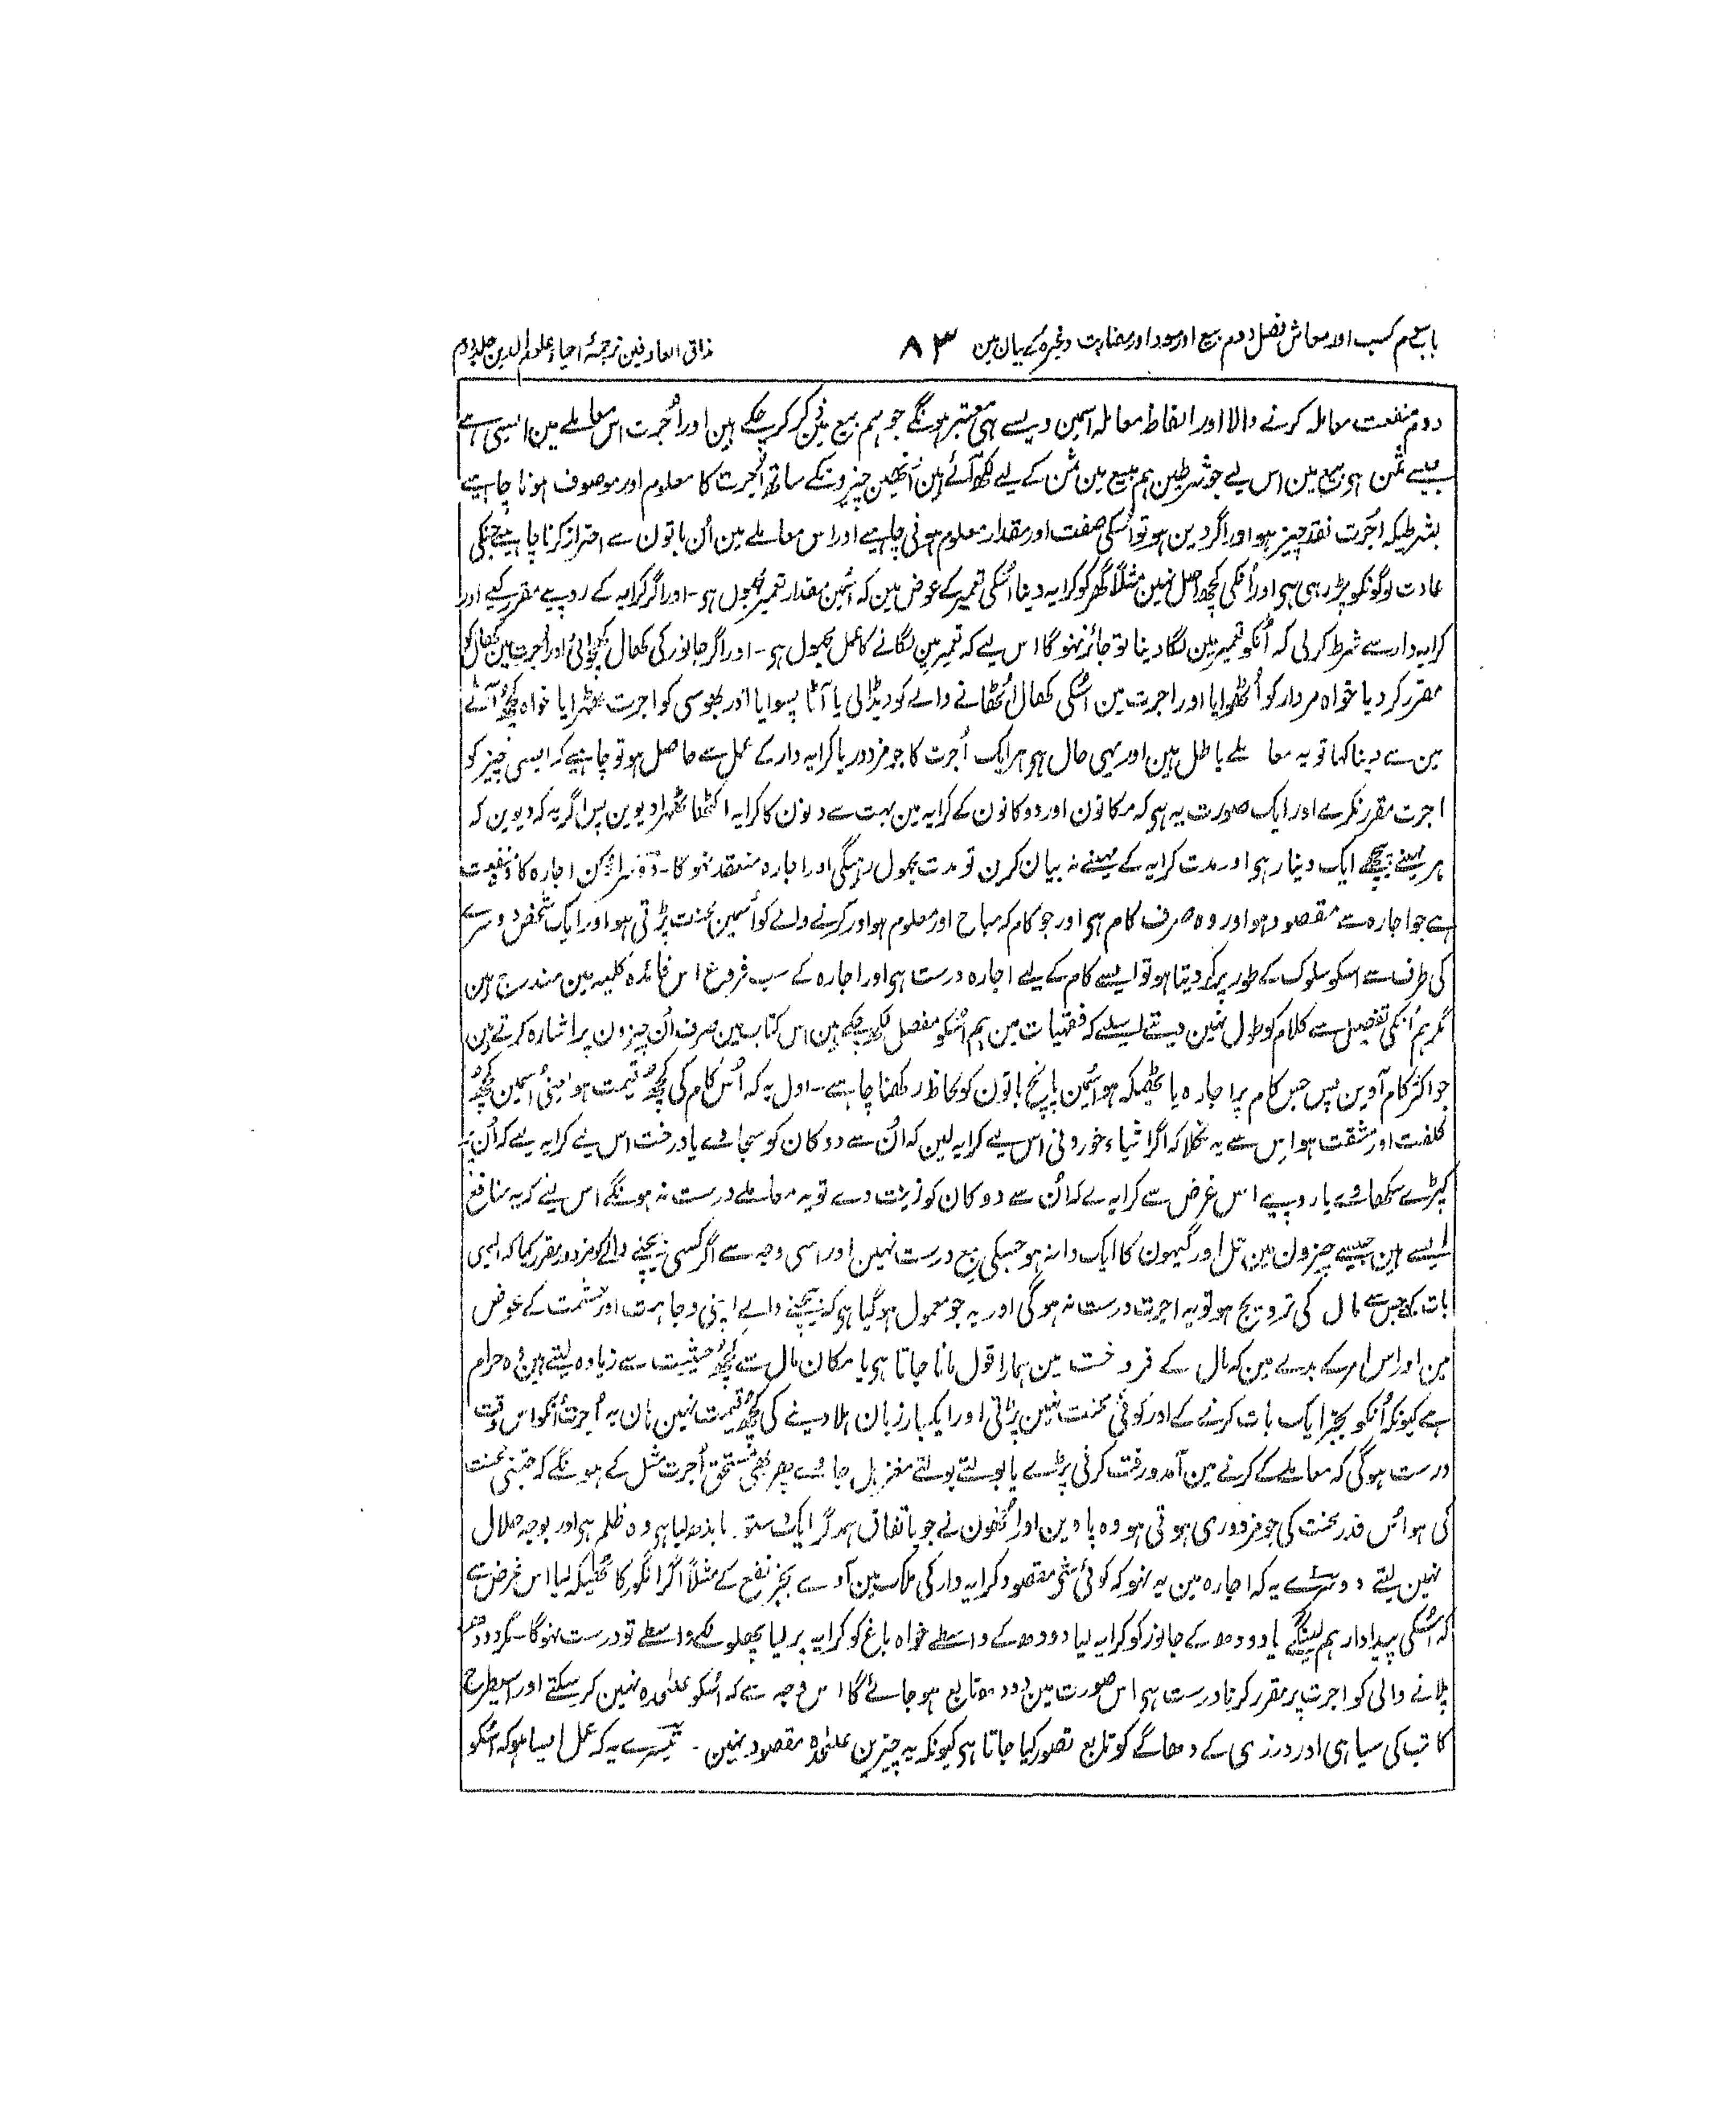 باب سوم کسب اور معاش فصل دوم بیع اور سود اور مضاربت وغیرہ کے بیان مین
۸۳
مذاق العارفین ترجمۂ احیاء علوم الدین جلد دوم
دوم منفعت معاملہ کرنے والا اور الفاظ معاملہ اسمین ویسے ہی معتبر ہونگے جو ہم بیع مین ذکر کر چکے ہین اور اُجرت اس معاملے مین ایسی ہے
جیسے ثمن ہی بیع مین اس لیے جو شرطین ہم بیع مین ثمن کے لیے لکھ آئے ہین اُنھین چیزونکے ساتھ اُجرت کا معلوم اور موصوف ہونا چاہیے
بشرطیکہ اجرت نقد چیز ہو اور اگر دین ہو تو اُسکی صفت اور مقدار معلوم ہونی چاہیے اور اس معاملے مین اُن باتون سے احتراز کرنا چاہیے جنکی
عادت لوگونکو پڑ رہی ہی اور اُنکی کچھ اصل نہین مثلاً گھر کو کرایہ دینا اُسکی تعمیر کے عوض مین کہ اُسمین مقدار تعمیر مجہول ہی۔ اور اگر کرایہ کے روپیے مقرر کیے اور
کرایہ دار سے شرط کرلی کہ اُنکو تعمیر مین لگا دینا تو جائز نہوگا اس لیے کہ تعمیر مین لگانے کا عمل مجہول ہی۔ اور اگر جانور کی کھال کھچوائی اور اُجرت مین کھال کو
مقرر کر دیا خواہ مردار کو اُٹھوایا اور اجرت مین اُسکی کھال اُٹھانے والے کو دیڈالی یا آٹا پسوایا اور بھوسی کو اجرت ٹھہرایا خواہ کچھ آٹے
مین سے دینا کہا تو یہ معاملے باطل ہین اور یہی حال ہی ہر ایک اُجرت کا جو مزدور یا کرایہ دار کے عمل سے حاصل ہو تو چاہیے کہ ایسی چیز کو
اجرت مقرر نکرے اور ایک صورت یہ ہی کہ مکانون اور دوکانون کے کرایہ مین بہت سے دنون کا کرایہ اکٹھا ٹھہرا دیوین پس اگر یہ کہ دیوین کہ
ہر مہینے پیچھے ایک دینار ہی اور مدت کرایہ کے مہینے نہ بیان کرین تو مدت مجہول رہیگی اور اجارہ منعقد نہوگا۔ دوسرا رکن اجارہ کا منفعت
ہے جو اجارہ سے مقصود ہو اور وہ صرف کام ہی اور جو کام کہ مباح اور معلوم ہو اور کرنے والے کو اُسمین محنت پڑتی ہو اور ایک شخص دوسرے
کی طرف سے اسکو سلوک کے طور پر کر دیتا ہو تو ایسے کام کے لیے اجارہ درست ہی اور اجارہ کے سب فروع اس قاعدہ کلیہ مین مندرج ہین
مگر ہم اُنکی تفصیل سے کلام کو طول نہین دیتے اسلیے کہ فقہیات مین ہم اُسکو مفصل لکھ چکے ہین اس کتاب مین صرف اُن چیزون پر اشارہ کرتے ہین
جو اکثر کام آوین پس جس کام پر اجارہ یا ٹھیکہ ہو اُسمین پانچ باتون کو لحاظ رکھنا چاہیے۔ اول یہ کہ اُس کام کی کچھ قیمت ہو یعنی اُسمین کچھ
کلفت اور مشقت ہو اس سے یہ نکلا کہ اگر اشیاء خوردنی اس لیے کرایہ لین کہ اُن سے دوکان کو سجاوے یا درخت اس لیے کرایہ لیے کہ اُن پر
کپڑے سکھاوے یا روپیے اس غرض سے کرایہ لے کہ اُن سے دوکان کو زینت دے تو یہ معاملے درست نہ ہونگے اس لیے کہ یہ منافع
ایسے ہین جیسے چیزون مین تل اور گیہون کا ایک دانہ ہو جسکی بیع درست نہین اور اسی وجہ سے اگر کسی بیچنے والے کو مزدور مقرر کیا کہ ایسی
بات کہے جس سے مال کی ترویج ہو تو یہ اجرت درست نہ ہوگی اور یہ جو معمول ہو گیا ہی کہ بیچنے والے اپنی وجاہت اور حشمت کے عوض
مین اور اس امر کے بدلے مین کہ مال کے فروخت مین ہمارا قول مانا جاتا ہی یا مکان مال سے کچھ حیثیت سے زیادہ لیتے ہین وہ حرام
ہے کیونکہ اُنکو بجز ایک بات کرنے کے اور کوئی محنت نہین پڑتی اور ایک بار زبان ہلا دینے کی کچھ قیمت نہین ہان یہ اُجرت اُنکو اس وقت
درست ہوگی کہ معاملے کے کرنے مین آمد و رفت کرنی پڑے یا بولتے بولتے مغز ہل جاوے پھر بھی مستحق اُجرت مثل کے ہونگے کہ جتنی محنت
کی ہو اُس قدر محنت کی جو مزدوری ہوتی ہو وہ پاوین اور اُنھون نے جو باتفاق ہمدگر ایک دستور باندھ لیا ہی وہ ظلم ہی اور بوجہ حلال
نہین لیتے دوسرے یہ کہ اجارہ مین یہ نہو کہ کوئی شئی مقصود کرایہ دار کی ملک مین آوے بجز نفع کے مثلاً اگر انگور کا ٹھیکہ لیا اس غرض سے
کہ اُسکی پیداوار ہم لینگے یا دودھ کے جانور کو کرایہ لیا دودھ کے واسطے خواہ باغ کو کرایہ پر لیا پھلونکے واسطے تو درست نہوگا۔ مگر دودھ
پلانے والی کو اجرت پر مقرر کرنا درست ہی اس صورت مین دودھ تابع ہو جائے گا اس وجہ سے کہ اُسکو علٰحدہ نہین کر سکتے اور اسیطرح
کاتب کی سیاہی اور درزی کے دھاگے کو تابع تصور کیا جاتا ہی کیونکہ یہ چیزین علٰحدہ مقصود نہین۔ تیسرے یہ کہ عمل ایسا ہو کہ اُسکو